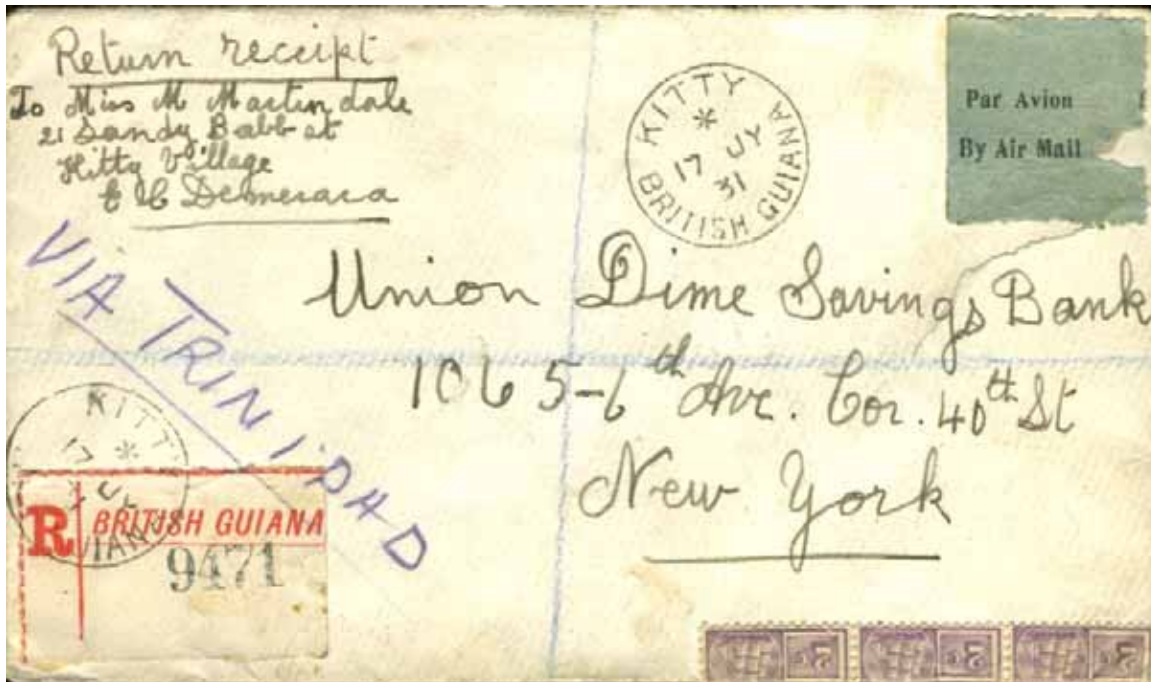 Return receipt
To Miss M Martindale
21 Sandy Babb st
Kitty Village
E C Demerara
KITTY
17 JY
31
BRITISH GUIANA
Par Avion
By Air Mail
VIA TRINIDAD
Union Dime Savings Bank
1065-6th Ave. Cor. 40th St
New York
KITTY
R BRITISH GUIANA
9471